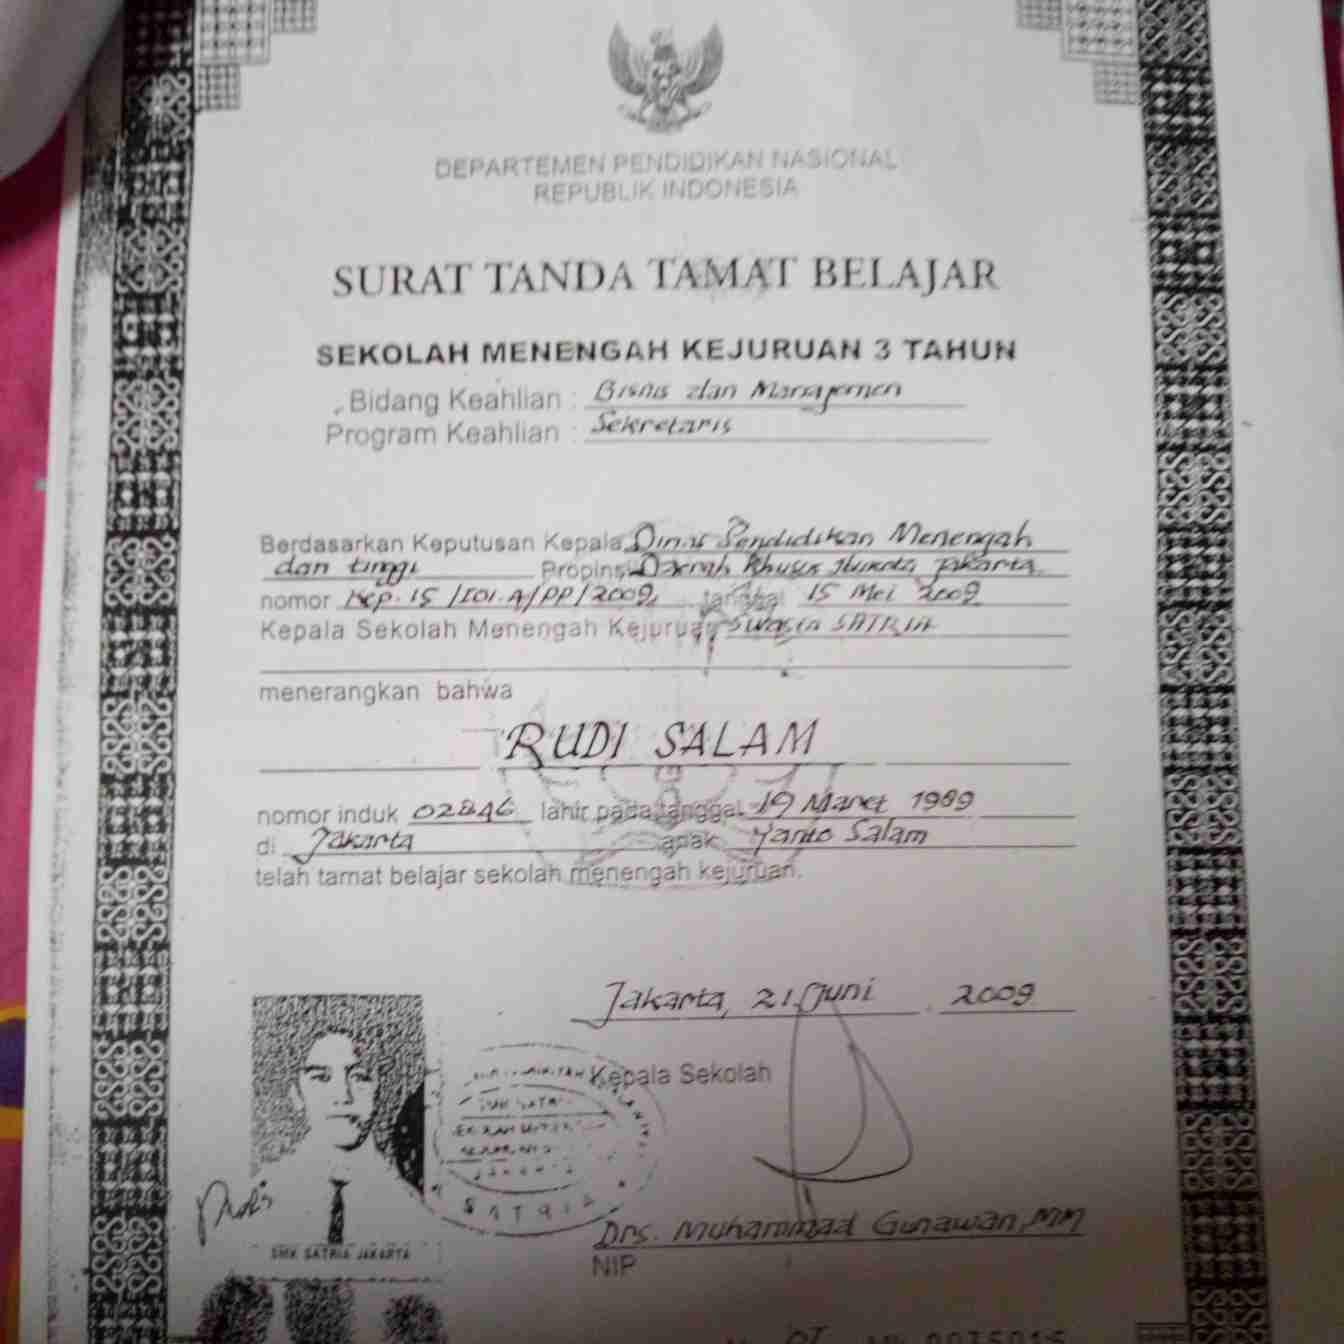 DEPARTEMEN PENDIDIKAN NASIONAL
REPUBLIK INDONESIA
SURAT TANDA TAMAT BELAJAR
SEKOLAH MENENGAH KEJURUAN 3 TAHUN
Bidang Keahlian : Bisnis dan Manajemen
Program Keahlian : Sekretaris
Berdasarkan Keputusan Kepala Dinas Pendidikan Menengah
dan tinggi Propinsi Daerah Khusus Ibukota Jakarta
nomor Kep. 15 /I01.A/PP/2009, tanggal 15 Mei 2009
Kepala Sekolah Menengah Kejuruan Swasta SATRIA
menerangkan bahwa
RUDI SALAM
nomor induk 02846 lahir pada tanggal 19 Maret 1989
di Jakarta anak Yanto Salam
telah tamat belajar sekolah menengah kejuruan.
Jakarta, 21 Juni 2009
Kepala Sekolah
SATRIA
Drs. Muhammad Gunawan, MM
SMK SATRIA JAKARTA
NIP